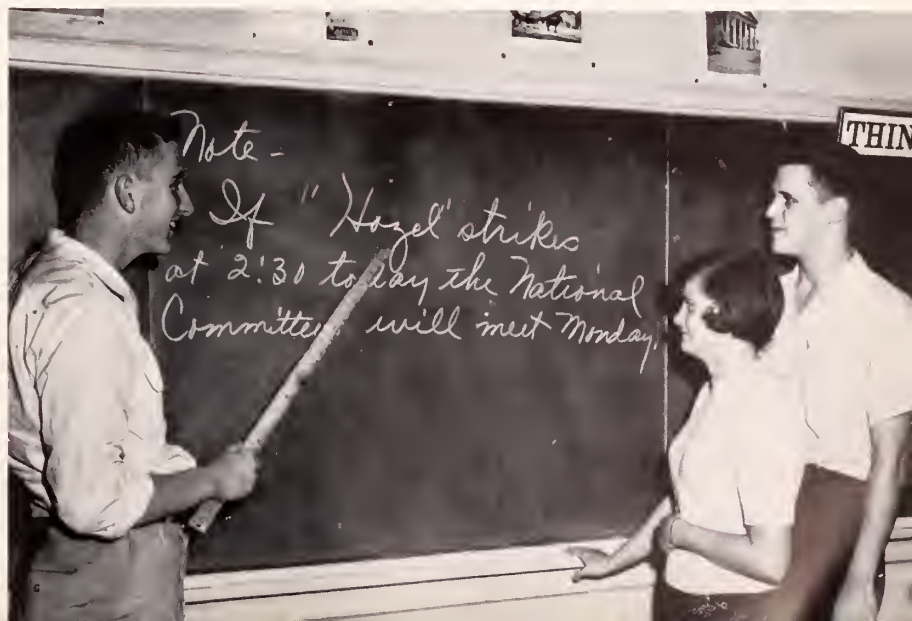 THIN
Note -
If "Hazel" strikes
at 2:30 today the National
Committee will meet Monday.